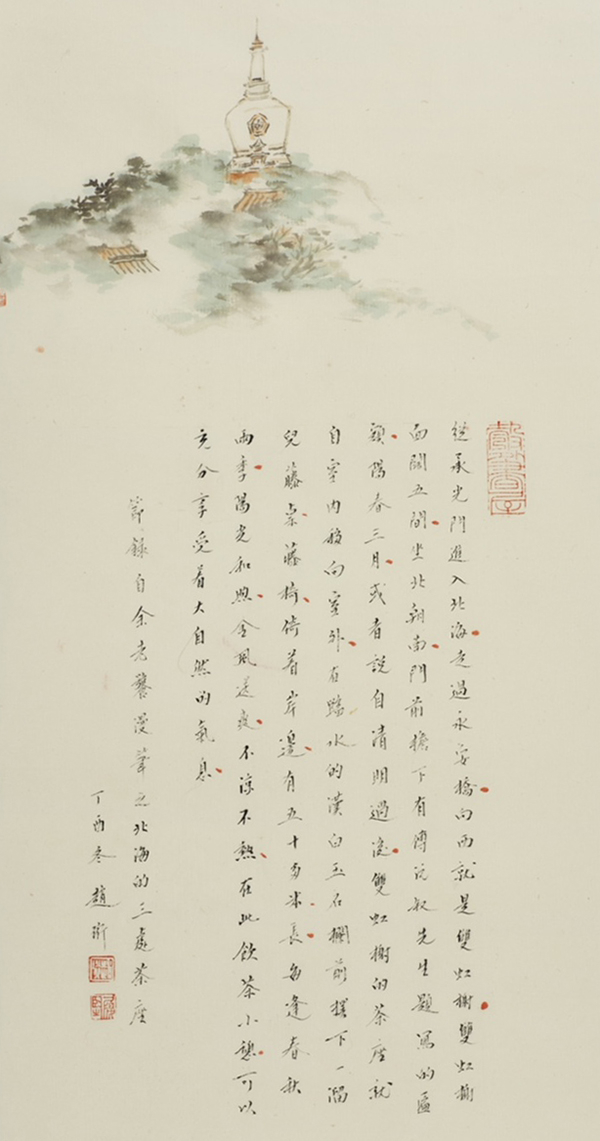 從承光門進入北海走過永安橋向西就是雙虹榭雙虹榭
面闊五間坐北朝南門前檐下有傅沅叔先生題寫的匾
額陽春三月或者說自清明過後雙虹榭的茶座就
自室内移向室外在臨水的漢白玉石欄前擺下一溜
兒藤桌藤椅倚着岸邊有五十多米長每逢春秋
兩季陽光和煦金風送爽不涼不熱在此飲茶小憩可以
充分享受着大自然的氣息
節録自余老饕漫筆之北海的三處茶座
丁酉冬趙珩